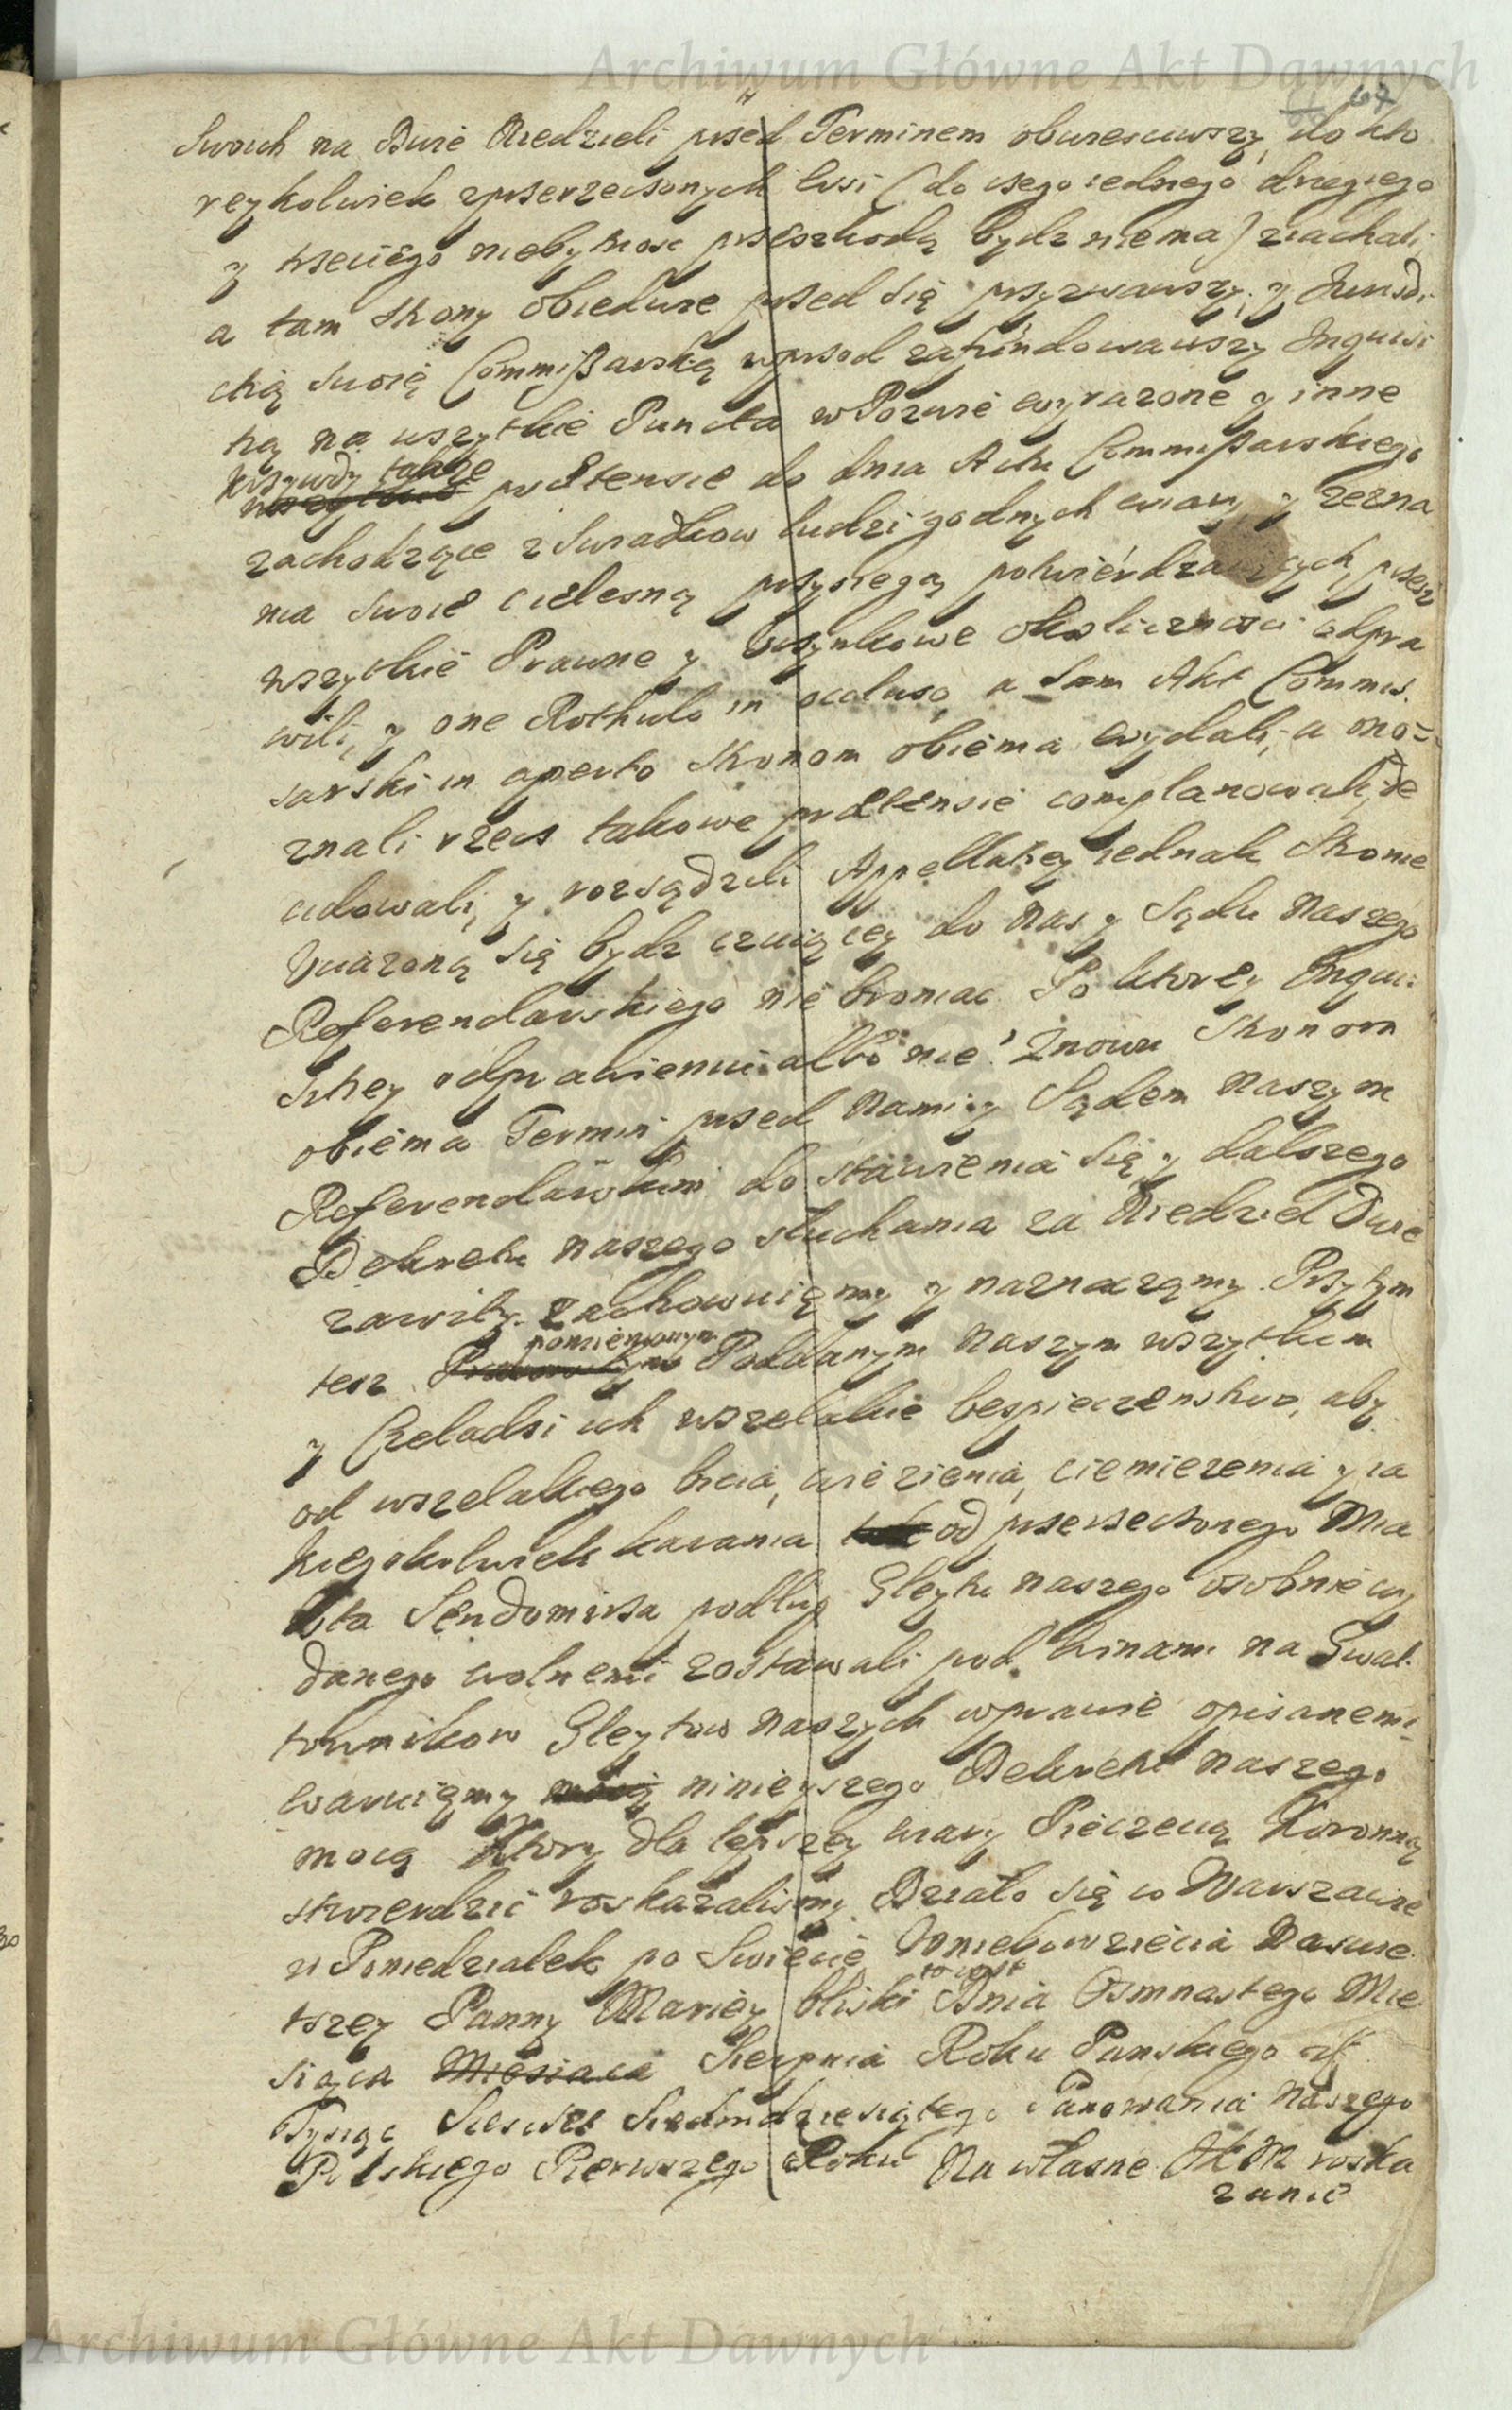 Archiwum Główne Akt Dawnych
67
Swoich na Dwie Niedzieli przed Terminem obwiesciwszy, do kto
reykolwiek zprzerzeczonych Wsi (do czego iednego drugiego
y trzeciego niebytnosc przeszkodą bydz niema) ziachali,
a tam Strony obiedwie przed się przyzwawszy, y Jurisdi
ctią Swoię Commissarską wprzod zafundowawszy Inquisi
tią na wszytkie Puncta w Pozwie wyrazone y inne
krzywdy także praetensie do dnia Aktu Commissarskiego
zachodzące z Swiadkow ludzi godnych wiary y zezna
nia swoie cielesną przysięgą potwierdzaiących, przez
wszytkie Prawne y Uczynkowe okoliczności odpra
wili, y one Rothulo in occluso, a Sam Akt Commis
sarski in aperto Stronom obiema wydali, a mo=
znali rzecz takowe praetensie complanowali, de
cidowali, y rozsądzili Appellatiey iednak Stronie
Uciązoną się bydz czuiącey do Nas y Sądu Naszego
Referendarskiego nie broniac. Po ktorey Inqui=
sitiey odprawieniu albo nie! Znowu Stronom
obiema Termin przed Nami y Sądem Naszym
Referendarskim do stawienia się y dalszego
Dekretu Naszego słuchania za Niedziel Dwie
zawity zachowuięmy y naznaczamy. Przytym
tesz pomienionym Poddanym Naszym wszytkim
y Czeladzi ich wszelakie bespieczenstwo, aby
od wszelakiego bicia, więzienia, ciemiezenia y ia
kiegokolwiek karania od przerzeczonego Mia
sta Sendomirza podług Gleytu naszego osobnie wy
danego wolnemi zostawali pod winami na Gwał
townikow Gleytow Naszych wprawie opisanemi
waruięmy ninieyszego Dekretu Naszego
mocą Ktory dla lepszey wiary Pieczecią Koronną
stwierdzić roskazalismy. Działo się w Warszawie
w Poniedziałek po Swięcie Wniebowzięcia Naswię
tszey Panny Mariey bliski to iest Dnia Osmnastego Mie
siąca Miesiaca Sierpnia Roku Panskiego
Tysiąc Szescset Siedmdziesiątego Panowania Naszego
Polskiego Pierwszego Roku Na własne JKM roska
zanie
Archiwum Główne Akt Dawnych